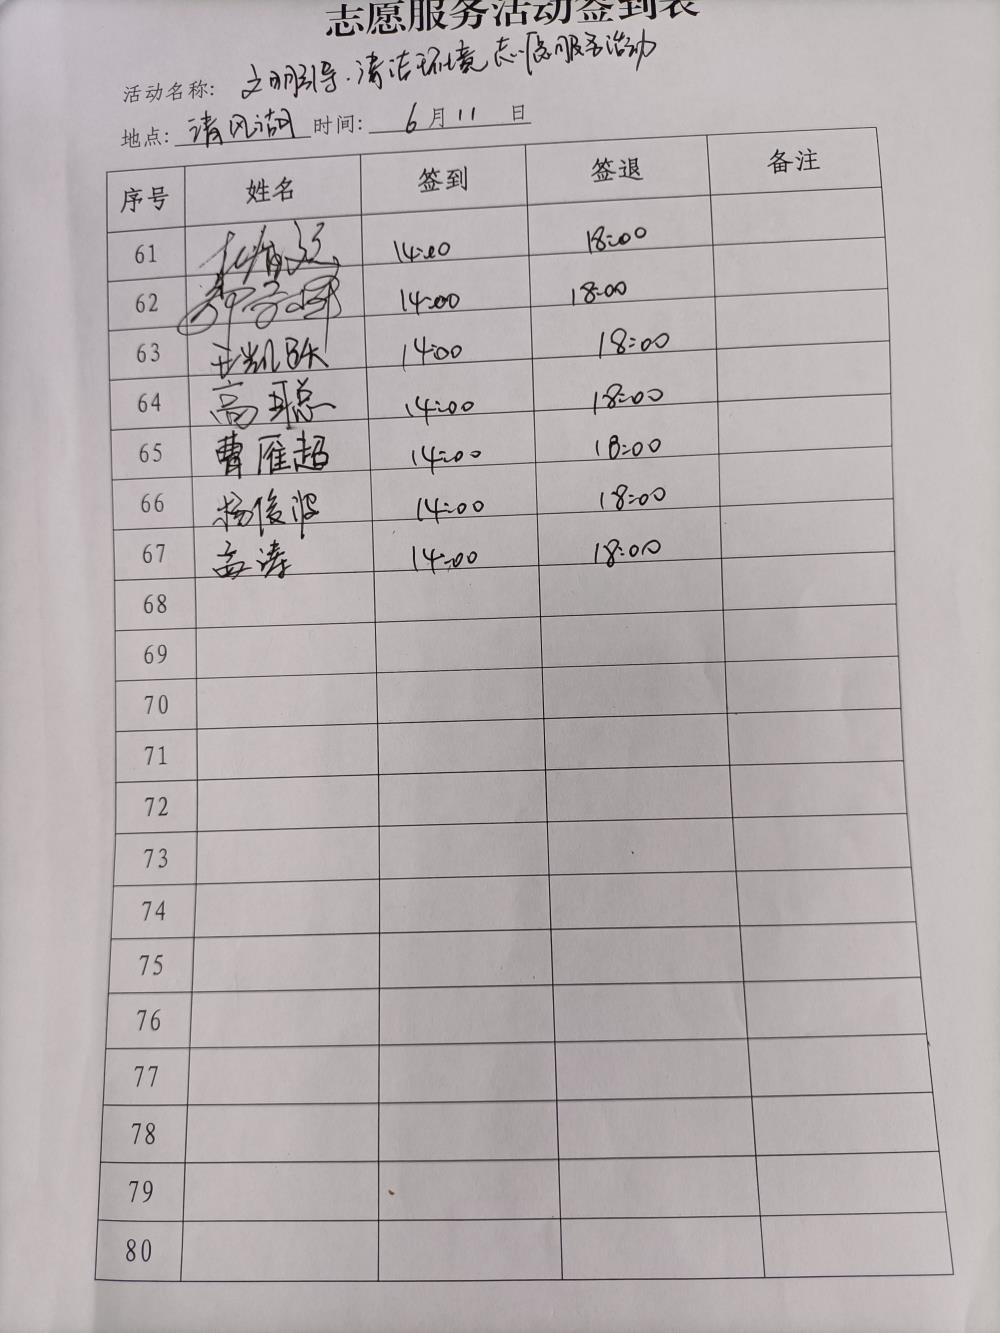 志愿服务活动签到表
活动名称: 文明引导·清洁环境志愿服务活动
地点: 清风湖 时间: 6月11日
序号 姓名 签到 签退 备注
61 14:00 18:00
62 14:00 18:00
63 14:00 18:00
64 高聪 14:00 18:00
65 曹雁超 14:00 18:00
66 杨俊波 14:00 18:00
67 孟涛 14:00 18:00
68
69
70
71
72
73
74
75
76
77
78
79
80